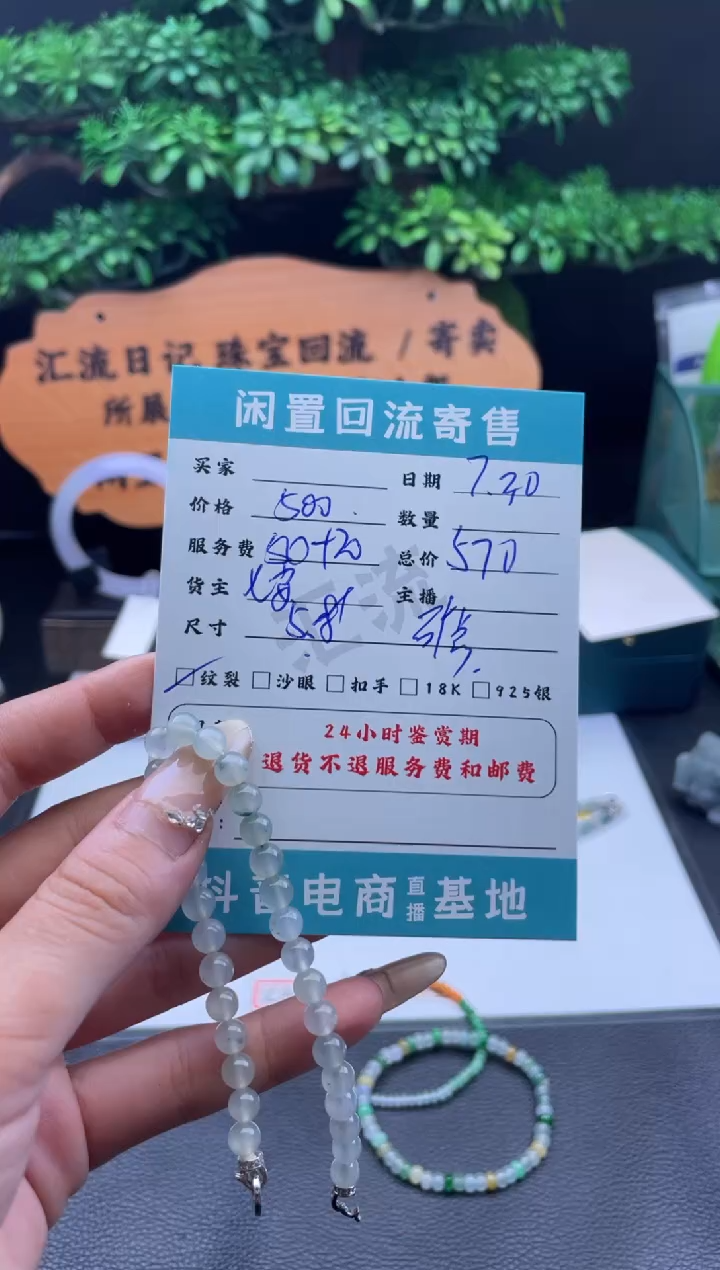 汇流日记 珠宝回流 / 寄卖
所展
闲置回流寄售
买家 日期 7.20
价格 500 数量
服务费 50+20 总价 570
货主 主播
尺寸 5.8
纹裂 沙眼 扣手 18K 925银
24小时鉴赏期
退货不退服务费和邮费
抖音电商直播基地
汇流